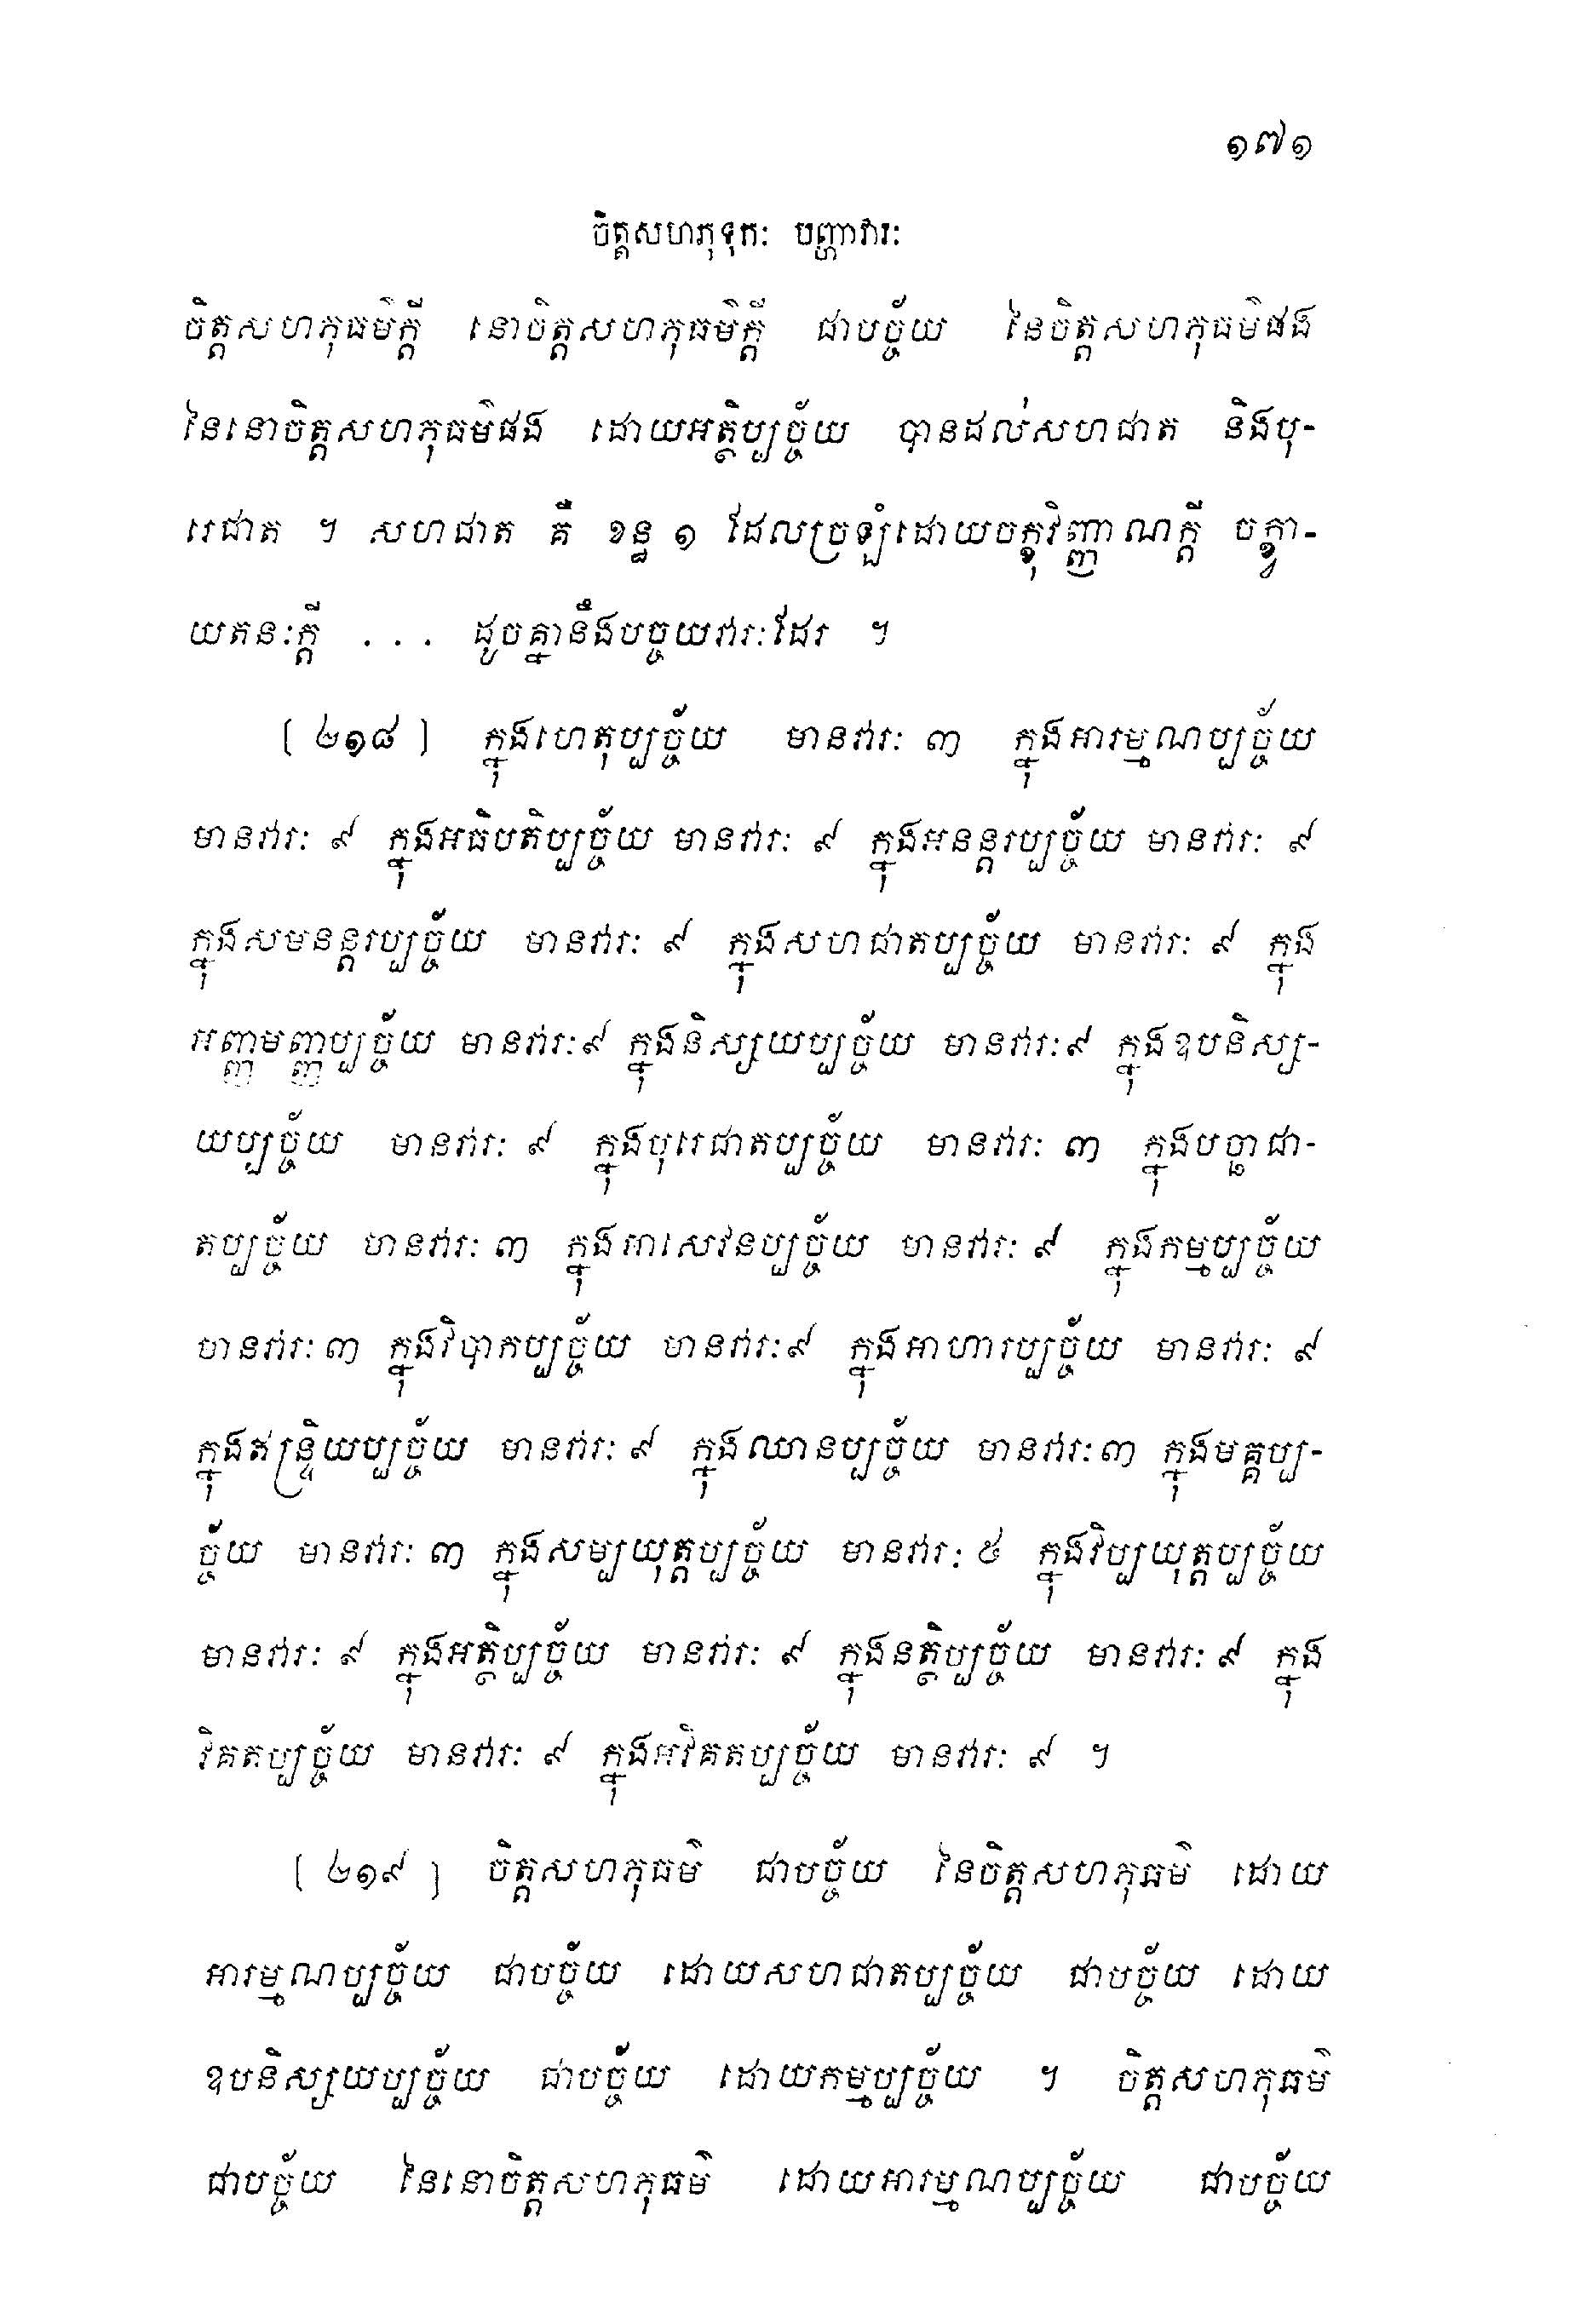 ១៧១
ចិត្តសហភុទុកៈ បញ្ហាវារៈ
ចិត្តសហភុធម៌ក្តី នោចិត្តសហភុធម៌ក្តី ជាបច្ច័យ នៃចិត្តសហភុធម៌ផង
នៃនោចិត្តសហភុធម៌ផង ដោយអត្ថិប្បច្ច័យ បានដល់សហជាត និងបុ-
រេជាត ។ សហជាត គឺ ខន្ធ ១ ដែលច្រឡំដោយចក្ខុវិញ្ញាណក្តី ចក្ខា-
យតនៈក្តី ... ដូចគ្នានឹងបច្ចយវារៈដែរ ។
[ ២១៨ ] ក្នុងហេតុប្បច្ច័យ មានវារៈ ៣ ក្នុងអារម្មណប្បច្ច័យ
មានវារៈ ៩ ក្នុងអធិបតិប្បច្ច័យ មានវារៈ ៩ ក្នុងអនន្តរប្បច្ច័យ មានវារៈ ៩
ក្នុងសមនន្តរប្បច្ច័យ មានវារៈ ៩ ក្នុងសហជាតប្បច្ច័យ មានវារៈ ៩ ក្នុង
អញ្ញមញ្ញប្បច្ច័យ មានវារៈ៩ ក្នុងនិស្សយប្បច្ច័យ មានវារៈ៩ ក្នុងឧបនិស្ស-
យប្បច្ច័យ មានវារៈ ៩ ក្នុងបុរេជាតប្បច្ច័យ មានវារៈ ៣ ក្នុងបច្ឆាជា-
តប្បច្ច័យ មានវារៈ ៣ ក្នុងអាសេវនប្បច្ច័យ មានវារៈ ៩ ក្នុងកម្មប្បច្ច័យ
មានវារៈ ៣ ក្នុងវិបាកប្បច្ច័យ មានវារៈ៩ ក្នុងអាហារប្បច្ច័យ មានវារៈ ៩
ក្នុងឥន្ទ្រិយប្បច្ច័យ មានវារៈ ៩ ក្នុងឈានប្បច្ច័យ មានវារៈ៣ ក្នុងមគ្គប្ប-
ច្ច័យ មានវារៈ ៣ ក្នុងសម្បយុត្តប្បច្ច័យ មានវារៈ ៥ ក្នុងវិប្បយុត្តប្បច្ច័យ
មានវារៈ ៩ ក្នុងអត្ថិប្បច្ច័យ មានវារៈ ៩ ក្នុងនត្ថិប្បច្ច័យ មានវារៈ ៩ ក្នុង
វិគតប្បច្ច័យ មានវារៈ ៩ ក្នុងអវិគតប្បច្ច័យ មានវារៈ ៩ ។
[ ២១៩ ] ចិត្តសហភុធម៌ ជាបច្ច័យ នៃចិត្តសហភុធម៌ ដោយ
អារម្មណប្បច្ច័យ ជាបច្ច័យ ដោយសហជាតប្បច្ច័យ ជាបច្ច័យ ដោយ
ឧបនិស្សយប្បច្ច័យ ជាបច្ច័យ ដោយកម្មប្បច្ច័យ ។ ចិត្តសហភុធម៌
ជាបច្ច័យ នៃនោចិត្តសហភុធម៌ ដោយអារម្មណប្បច្ច័យ ជាបច្ច័យ